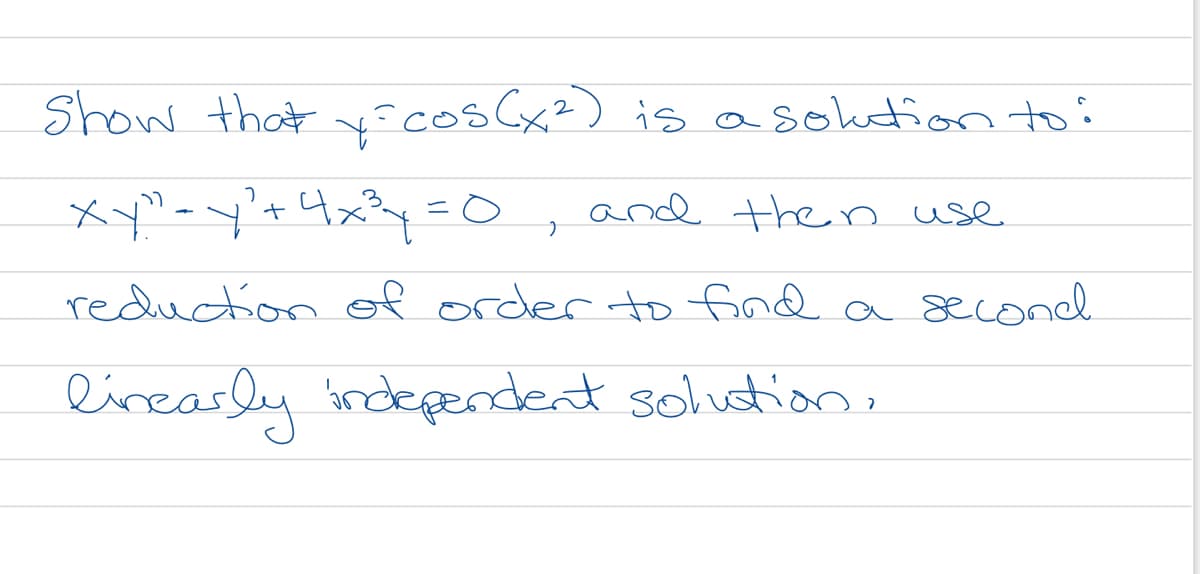 Show that y=cos(x²) is a solution to:
xy"-y'+4x³y=0, and then use
reduction of order to find a second
linearly independent solution.